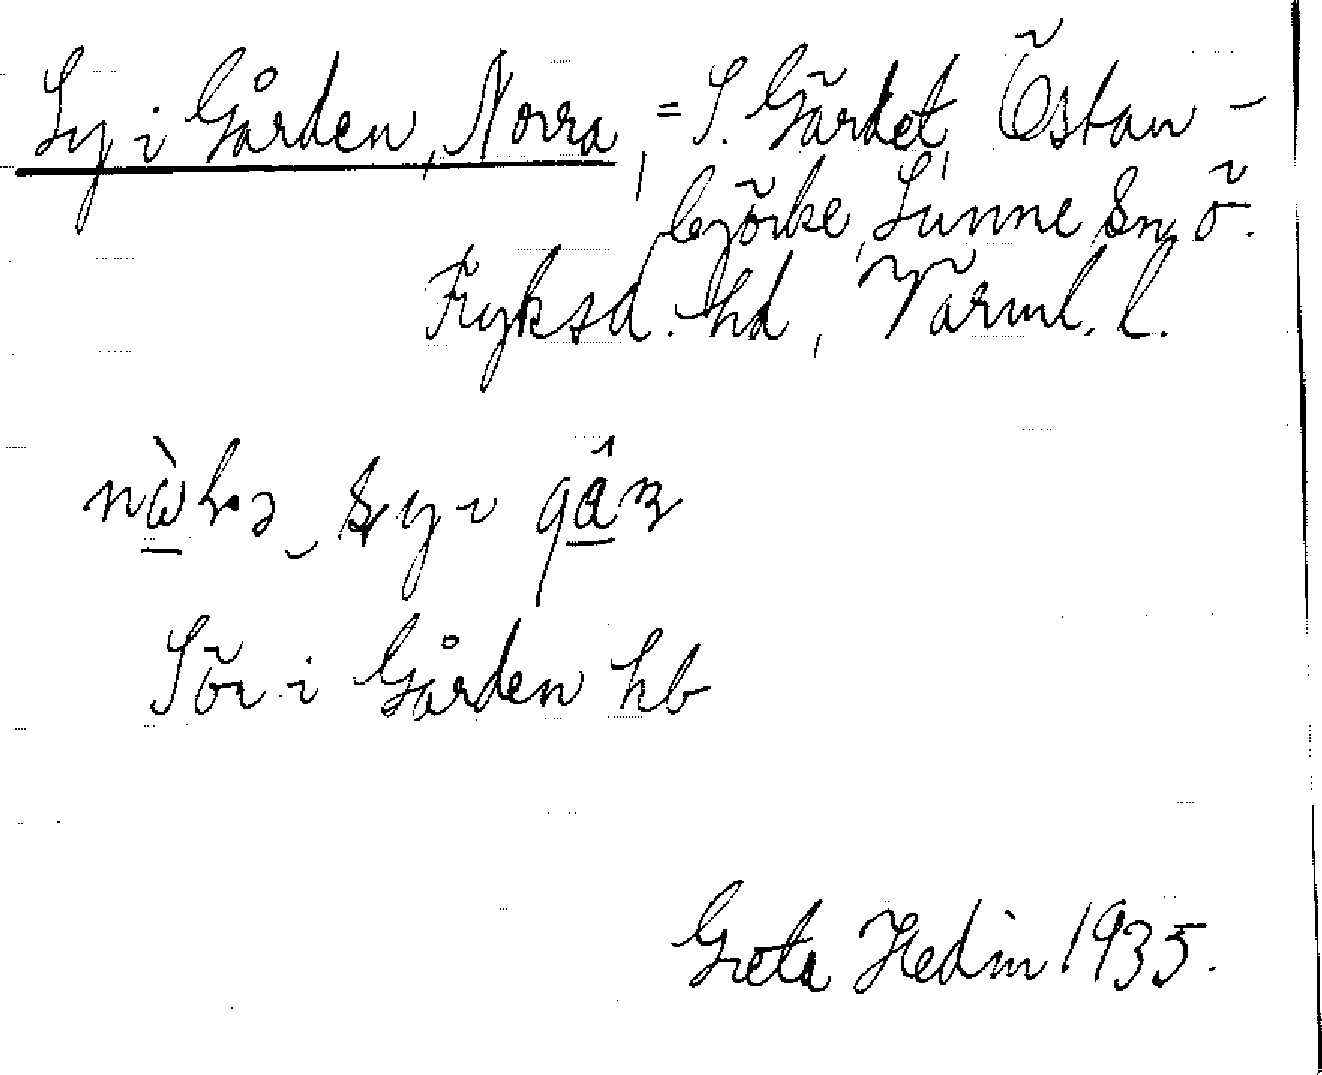 Sy i Gården, Norra, = S. Gärdet, Östan-
björke, Sunne sn, ö.
Fryksd. hd, Värml. l.
sy i
Sör i Gården hb
Greta Hedin 1935.